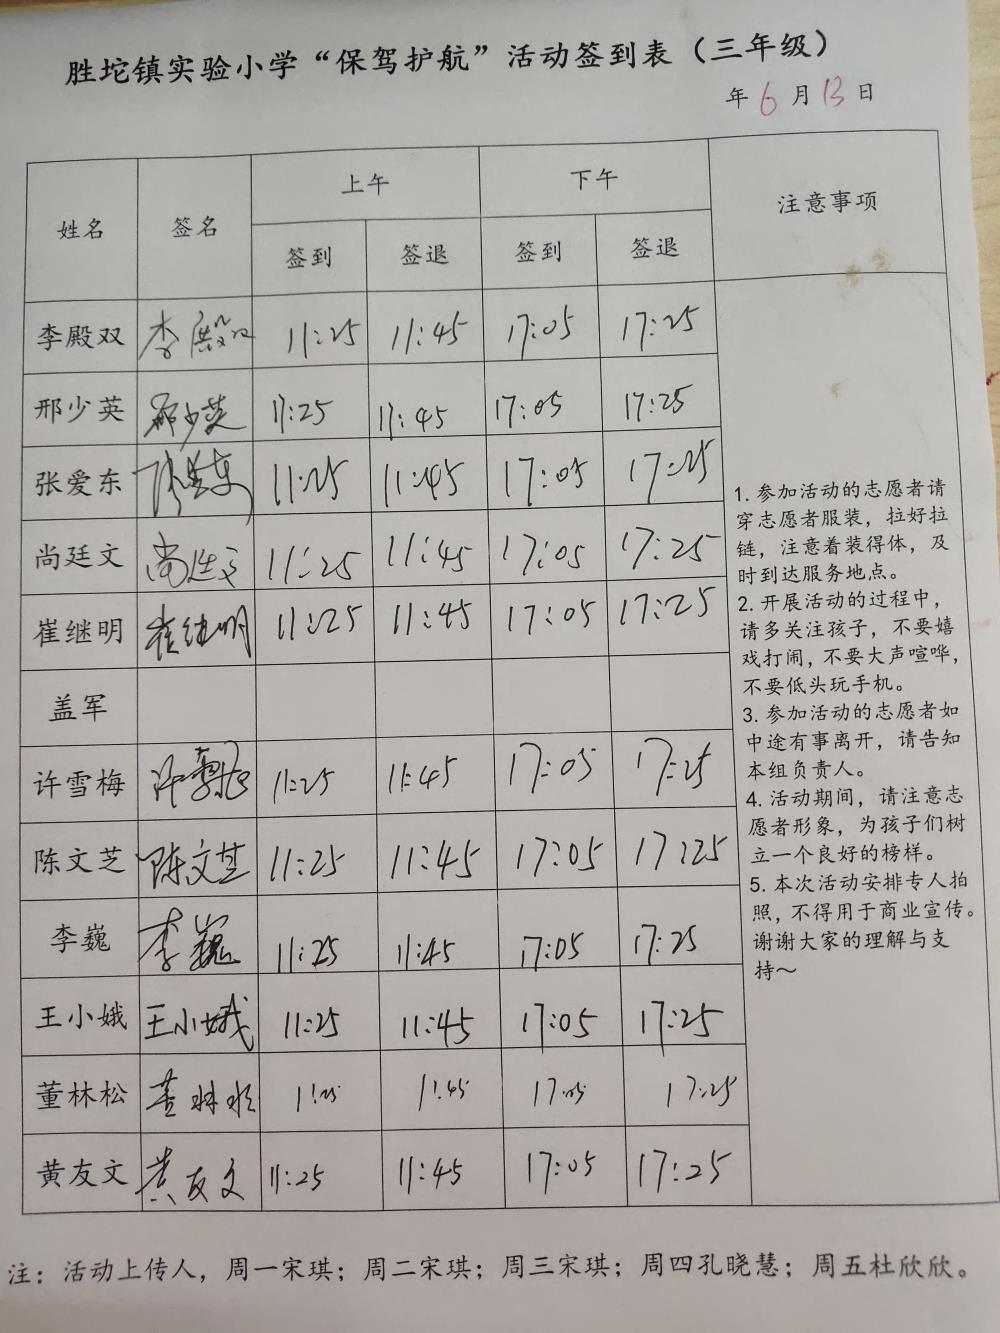 胜坨镇实验小学“保驾护航”活动签到表（三年级）
年 6 月 13 日
姓名 签名 上午 下午 注意事项
签到 签退 签到 签退
李殿双 李殿双 11:25 11:45 17:05 17:25
邢少英 邢少英 11:25 11:45 17:05 17:25
张爱东 张爱东 11:25 11:45 17:05 17:25
尚廷文 尚廷文 11:25 11:45 17:05 17:25
崔继明 崔继明 11:25 11:45 17:05 17:25
盖军
许雪梅 许雪梅 11:25 11:45 17:05 17:25
陈文芝 陈文芝 11:25 11:45 17:05 17:25
李巍 李巍 11:25 11:45 17:05 17:25
王小娥 王小娥 11:25 11:45 17:05 17:25
董林松 董林松 11:25 11:45 17:05 17:25
黄友文 黄友文 11:25 11:45 17:05 17:25
1. 参加活动的志愿者请
穿志愿者服装，拉好拉
链，注意着装得体，及
时到达服务地点。
2. 开展活动的过程中，
请多关注孩子，不要嬉
戏打闹，不要大声喧哗，
不要低头玩手机。
3. 参加活动的志愿者如
中途有事离开，请告知
本组负责人。
4. 活动期间，请注意志
愿者形象，为孩子们树
立一个良好的榜样。
5. 本次活动安排专人拍
照，不得用于商业宣传。
谢谢大家的理解与支
持～
注：活动上传人，周一宋琪；周二宋琪；周三宋琪；周四孔晓慧；周五杜欣欣。